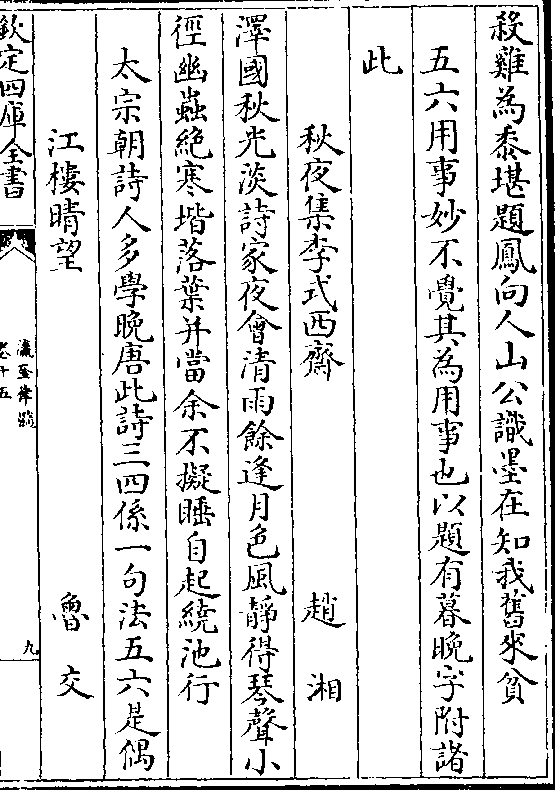 殺雞為黍堪題鳳向人山公識墨在知我舊來貧
五六用事妙不覺其為用事也以題有暮晚字附諸
此
秋夜集李式西齋　趙湘
澤國秋光淡詩家夜會清雨餘逢月色風靜得琴聲小
徑幽蟲絶寒堦落葉并當余不擬睡自起繞池行
太宗朝詩人多學晚唐此詩三四係一句法五六是偶
江樓晴望　魯交
欽定四庫全書
瀛奎律髓
卷十五
九